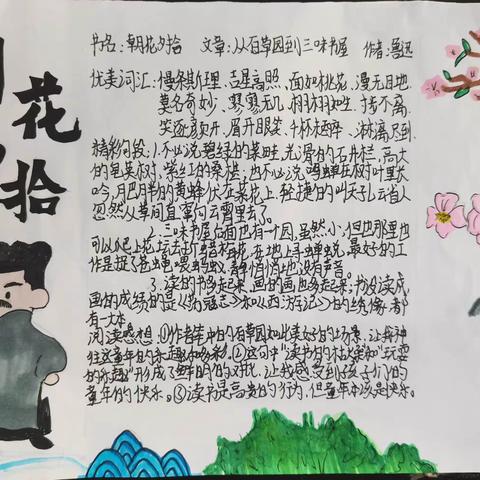 花
拾
书名:朝花夕拾 文章:从百草园到三味书屋 作者:鲁迅
优美词汇:慢条斯理、吉星高照、面如桃花、漫无目地
莫名奇妙、寥寥无几、栩栩如生、
笑逐颜开、眉开眼笑、千杯、淋漓尽
精彩句段:1.不必说碧绿的菜畦,光滑的石井栏,高大
的皂荚树,紫红的桑椹;也不必说,鸣蝉在树叶里长
吟,肥胖的黄蜂伏在菜花上,轻捷的叫天子(云雀)
忽然从草间直窜向云霄里去了。
2.三味书屋后面也有一个园,虽然小,但在那里也
可以爬上花坛去折腊梅花,在地上寻蝉蜕,最好的工
作是捉了苍蝇喂蚂蚁,静悄悄地没有声音。
3.读的书多起来,画的画也多起来;书没读成,
画的成绩的是《荡寇志》和《西游记》的绣像,都
有一大本
阅读感想:①作者笔中的百草园如此美好的场景,让我神
往这童年的乐趣和多彩。②这句中"读书的枯燥和"玩耍
的乐趣"形成了鲜明的对比,让我感受到孩子们的
童年的快乐。③读书是高贵的行为,但童年本该是快乐。